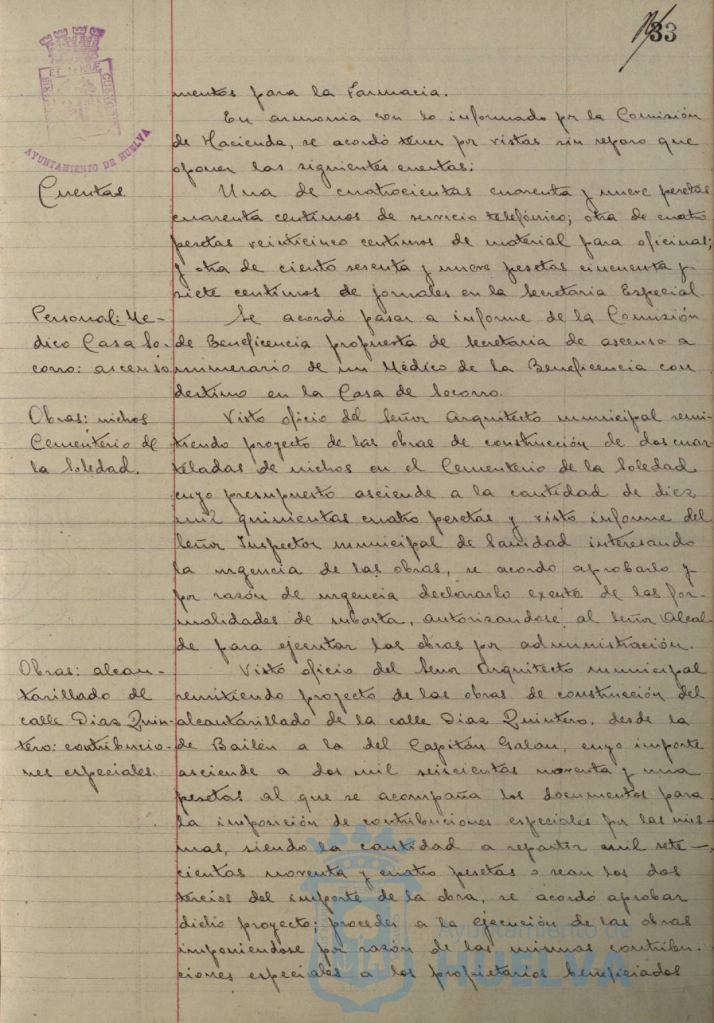 33
AYUNTAMIENTO DE HUELVA
mentos para la Farmacia.
En armonia con lo informado por la Comisión
de Hacienda, se acordó tener por vistas sin reparo que
oponer las siguientes cuentas:
Cuentas
Una de cuatrocientas cuarenta y nueve pesetas
cuarenta centimos de servicio telefónico; otra de cuatro
pesetas veinticinco centimos de material para oficinas;
y otra de ciento sesenta y nueve pesetas cincuenta y
siete centimos de jornales en la Secretaria Especial.
Personal: Me-
dico Casa So-
corro: ascenso
Se acordó pasar a informe de la Comisión
de Beneficencia propuesta de Secretaria de ascenso a
numerario de un Médico de la Beneficencia con
destino en la Casa de Socorro.
Obras: nichos
Cementerio de
la Soledad.
Visto oficio del Señor Arquitecto municipal remi-
tiendo proyecto de las obras de construcción de dos cuar-
teladas de nichos en el Cementerio de la Soledad
cuyo presupuesto asciende a la cantidad de diez
mil quinientas cuatro pesetas y visto informe del
Señor Inspector municipal de Sanidad interesando
la urgencia de las obras, se acordó aprobarlo y
por razón de urgencia declararlo exento de las for-
malidades de subasta, autorizandose al Señor Alcal-
de para ejecutar las obras por administración.
Obras: alcan-
tarillado de
calle Diaz Quin-
tero: contribucio-
nes especiales.
Visto oficio del Senor Arquitecto municipal
remitiendo proyecto de las obras de construcción del
alcantarillado de la calle Diaz Quintero, desde la
de Bailén a la del Capitán Galan, cuyo importe
asciende a dos mil seiscientas noventa y una
pesetas al que se acompaña los documentos para
la imposición de contribuciones especiales por las mis-
mas, siendo la cantidad a repartir mil sete-
cientas noventa y cuatro pesetas o sean los dos
tercios del importe de la obra, se acordó aprobar
dicho proyecto; proceder a la ejecución de las obras
imponiendose por razón de las mismas contribu-
ciones especiales a los propietarios beneficiados
Ayuntamiento de
HUELVA